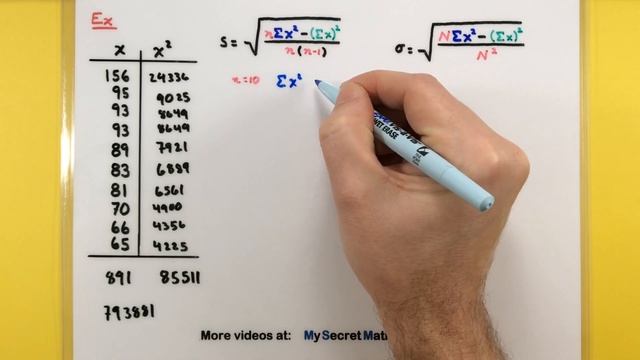 Ex
x x²
156 24336
95 9025
93 8649
93 8649
89 7921
83 6889
81 6561
70 4900
66 4356
65 4225
891 85511
793881
S = √(nΣx² - (Σx)² / n(n-1))
σ = √(NΣx² - (Σx)² / N²)
n=10 Σx²
WET ERASE
More videos at: MySecretMat